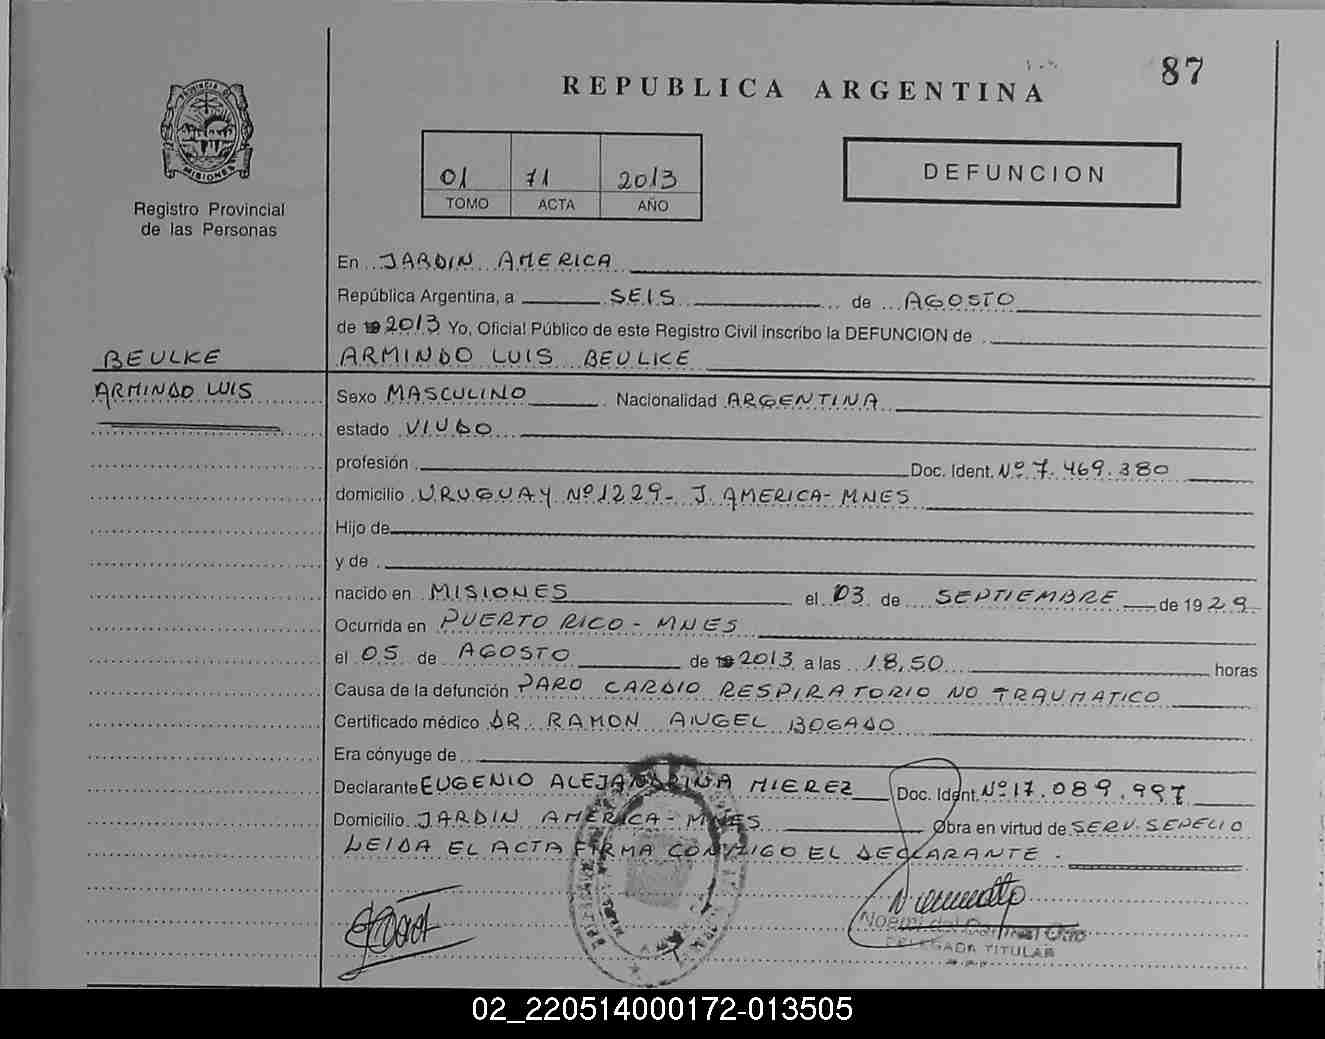 87
REPUBLICA ARGENTINA
PROVINCIA DE
MISIONES
Registro Provincial
de las Personas
01 71 2013
TOMO ACTA AÑO
DEFUNCION
En JARDIN AMERICA
República Argentina, a SEIS de AGOSTO
de 19 2013 Yo, Oficial Público de este Registro Civil inscribo la DEFUNCION de
BEULKE
ARMINDO LUIS
ARMINDO LUIS BEULKE
Sexo MASCULINO Nacionalidad ARGENTINA
estado VIUDO
profesión Doc. Ident. Nº 7.469.380
domicilio URUGUAY Nº 1229- J. AMERICA- MNES
Hijo de
y de
nacido en MISIONES el 03 de SEPTIEMBRE de 1929
Ocurrida en PUERTO RICO - MNES
el 05 de AGOSTO de 19 2013 a las 18,50 horas
Causa de la defunción PARO CARDIO RESPIRATORIO NO TRAUMATICO
Certificado médico DR. RAMON ANGEL BOGADO
Era cónyuge de
Declarante EUGENIO ALEJANDRINA MIEREZ Doc. Ident. Nº 17.089.997
Domicilio JARDIN AMERICA - MNES Obra en virtud de SERV. SEPELIO
LEIDA EL ACTA FIRMA CONMIGO EL DECLARANTE.
Noemi del Carmen
DELEGADA TITULAR
02_220514000172-013505